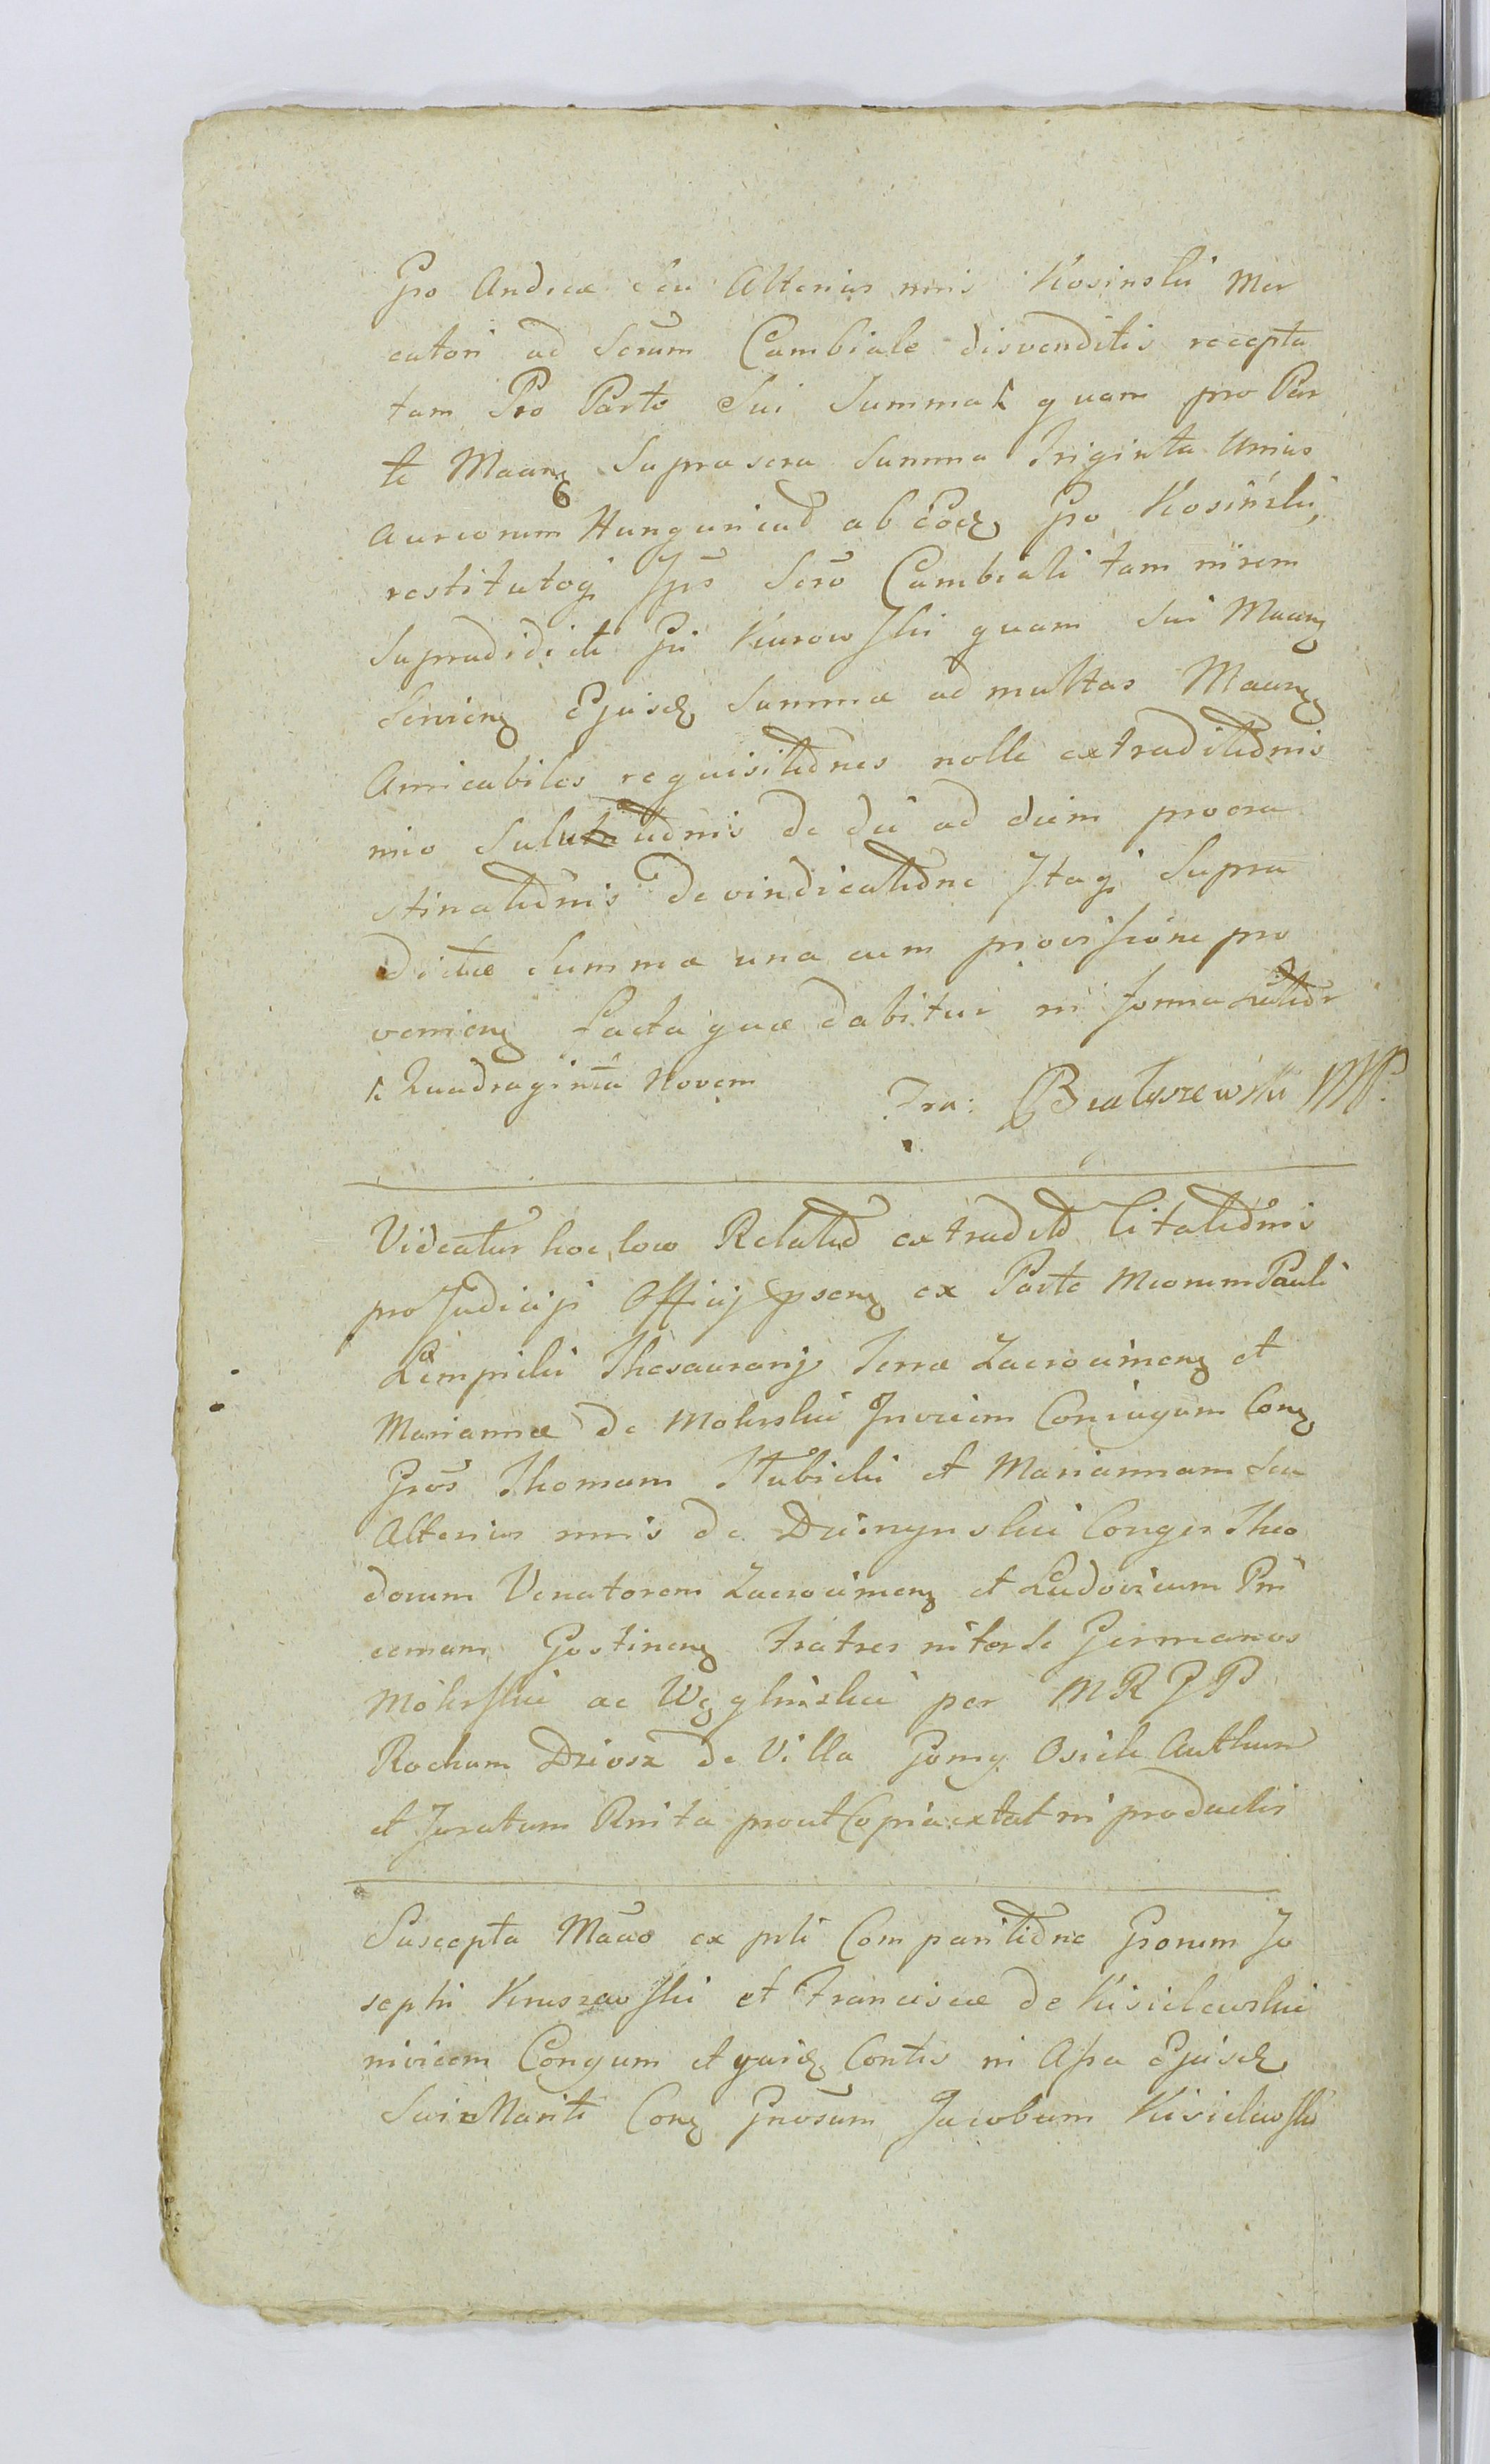 Gso Andreæ seu Alterius nnis Kosinski Mer
catori ad Scrum Cambiale disvenditis recepta
tam Pro Parte Sui Summa quam pro Par
te Maanꝫ Suprascra Summa Triginta Unius
Aureorum Hungaricad ab eodꝫ Gso Kosiński,
restitutoq Ipso Scro Cambiali tam
Supradicti Gsi Kurowski quam Sui Maanꝫ
Servienꝫ Ejusdꝫ Summæ ad multas Maanꝫ
Amicabiles requisitiones nolle extraditionis
mio Solutionis de die ad diem procra
stinationis devindicatione Itaq Supra
dictæ Summæ una cum provisione pro
venienꝫ Pacta quæ dabitur in
Quadraginta Novem
Fra: Białyszewski MP.
Videatur hoc loco Relatio extradit Citationis
pro Judicijs Officij ex Parte Mcorum Pauli
Lempicki Thesaurarij Terræ Zacrocimenꝫ et
Mariannæ de Mokrskie Invicem Coniugum Conꝫ
Gsos Thomam Słubicki et Mariannam seu
Alterius nnis de Congs Theo
dorum Venatorem Zacrocimenꝫ et Ludovicum Pin
cernam Gostinenꝫ Fratres inter se Germanos
Mokrskie ac Węglinskie per MRGP
Rochum Driosz de Villa Osiek Authen
et Juratum Rnita prout Copia extat in productis
Suscepta Maao ex prti Comparitione Gsorum Jo
sephi Kruszewski et Franciscæ de Kisielewskie
invicem Congum et quidꝫ Contis in Assa Ejusdꝫ
Sui Mariti Conꝫ Gnosum Jacobum Kisielewski